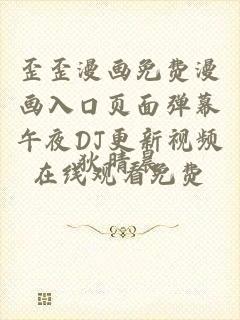 歪歪漫画免费漫
画入口页面弹幕
午夜DJ更新视频
在线观看免费
狄晴晨